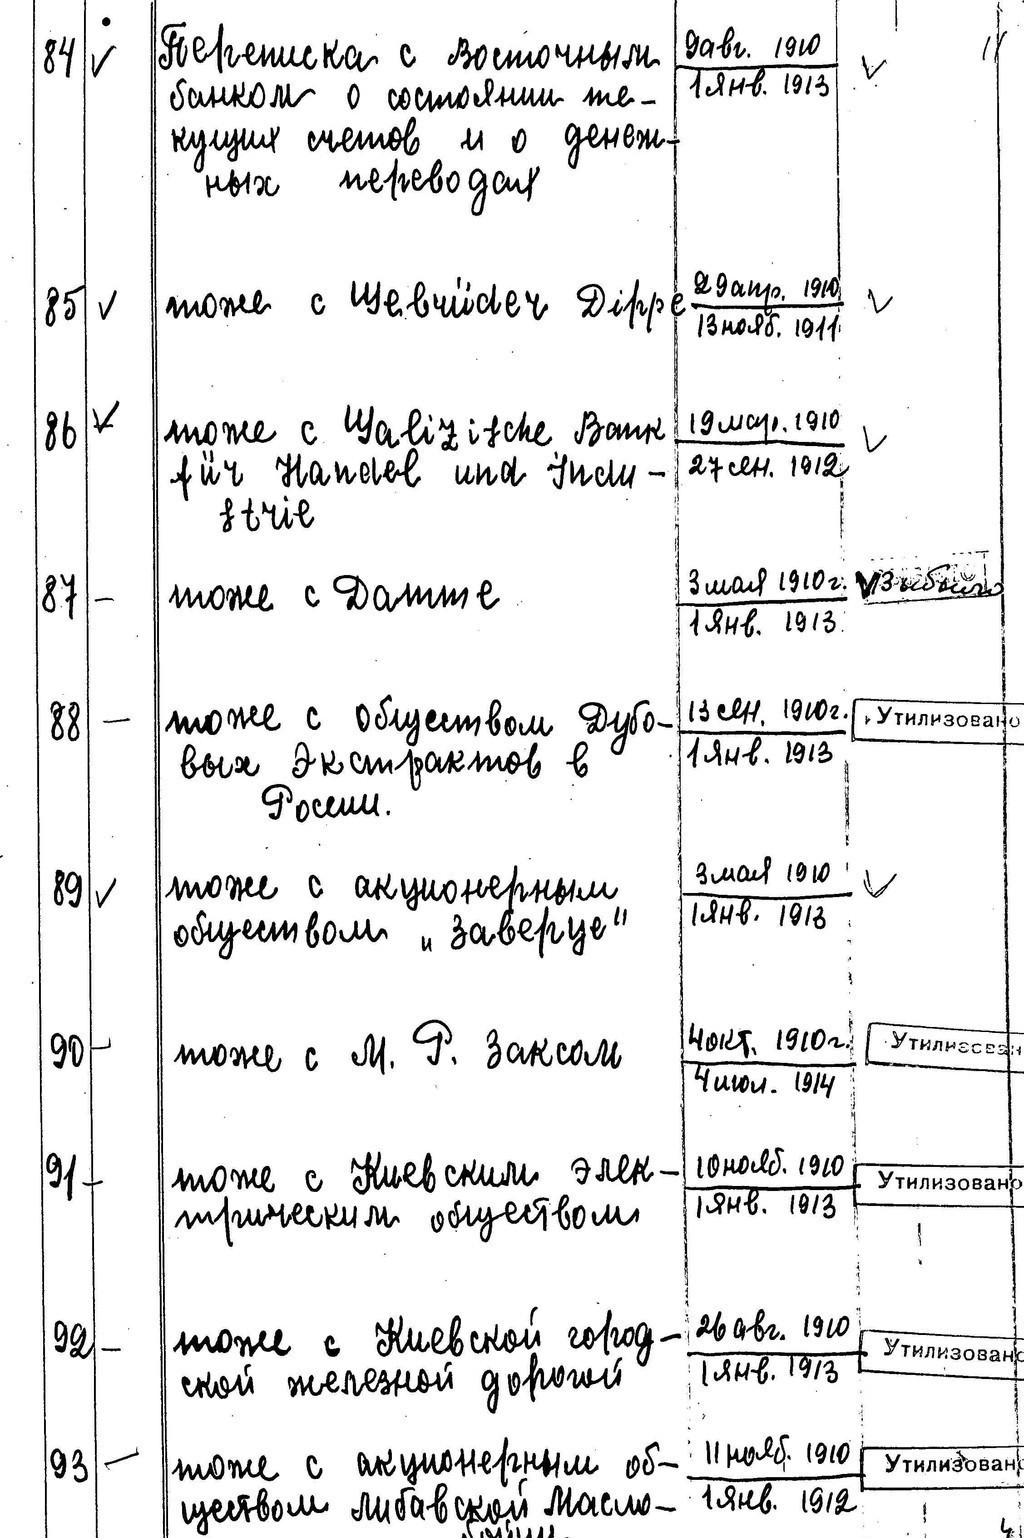 84 ✓ Переписка с Восточным 9 авг. 1910 ✓
банком о состоянии те- 1 янв. 1913
кущих счетов и о денеж-
ных переводах
85 ✓ тоже с Gebrüder Dippe 29 апр. 1910 ✓
13 нояб. 1911
86 ✓ тоже с Galizische Bank 19 мар. 1910 ✓
für Handel und Indu- 27 сен. 1912
strie
87 – тоже с Дамме 3 мая 1910 г. ✓
1 янв. 1913
88 – тоже с обществом Дубо- 13 сен. 1910 г. Утилизовано
вых Экстрактов в 1 янв. 1913
России.
89 ✓ тоже с акционерным 3 мая 1910 ✓
обществом „Заверце" 1 янв. 1913
90 – тоже с М. Р. Заксом 4 окт. 1910 г. Утилизован
4 июл. 1914
91 – тоже с Киевским элек- 10 нояб. 1910 Утилизовано
трическим обществом 1 янв. 1913
92 – тоже с Киевской город- 26 авг. 1910 Утилизовано
ской железной дорогой 1 янв. 1913
93 – тоже с акционерным об- 11 нояб. 1910 Утилизован
ществом Либавской Масло- 1 янв. 1912